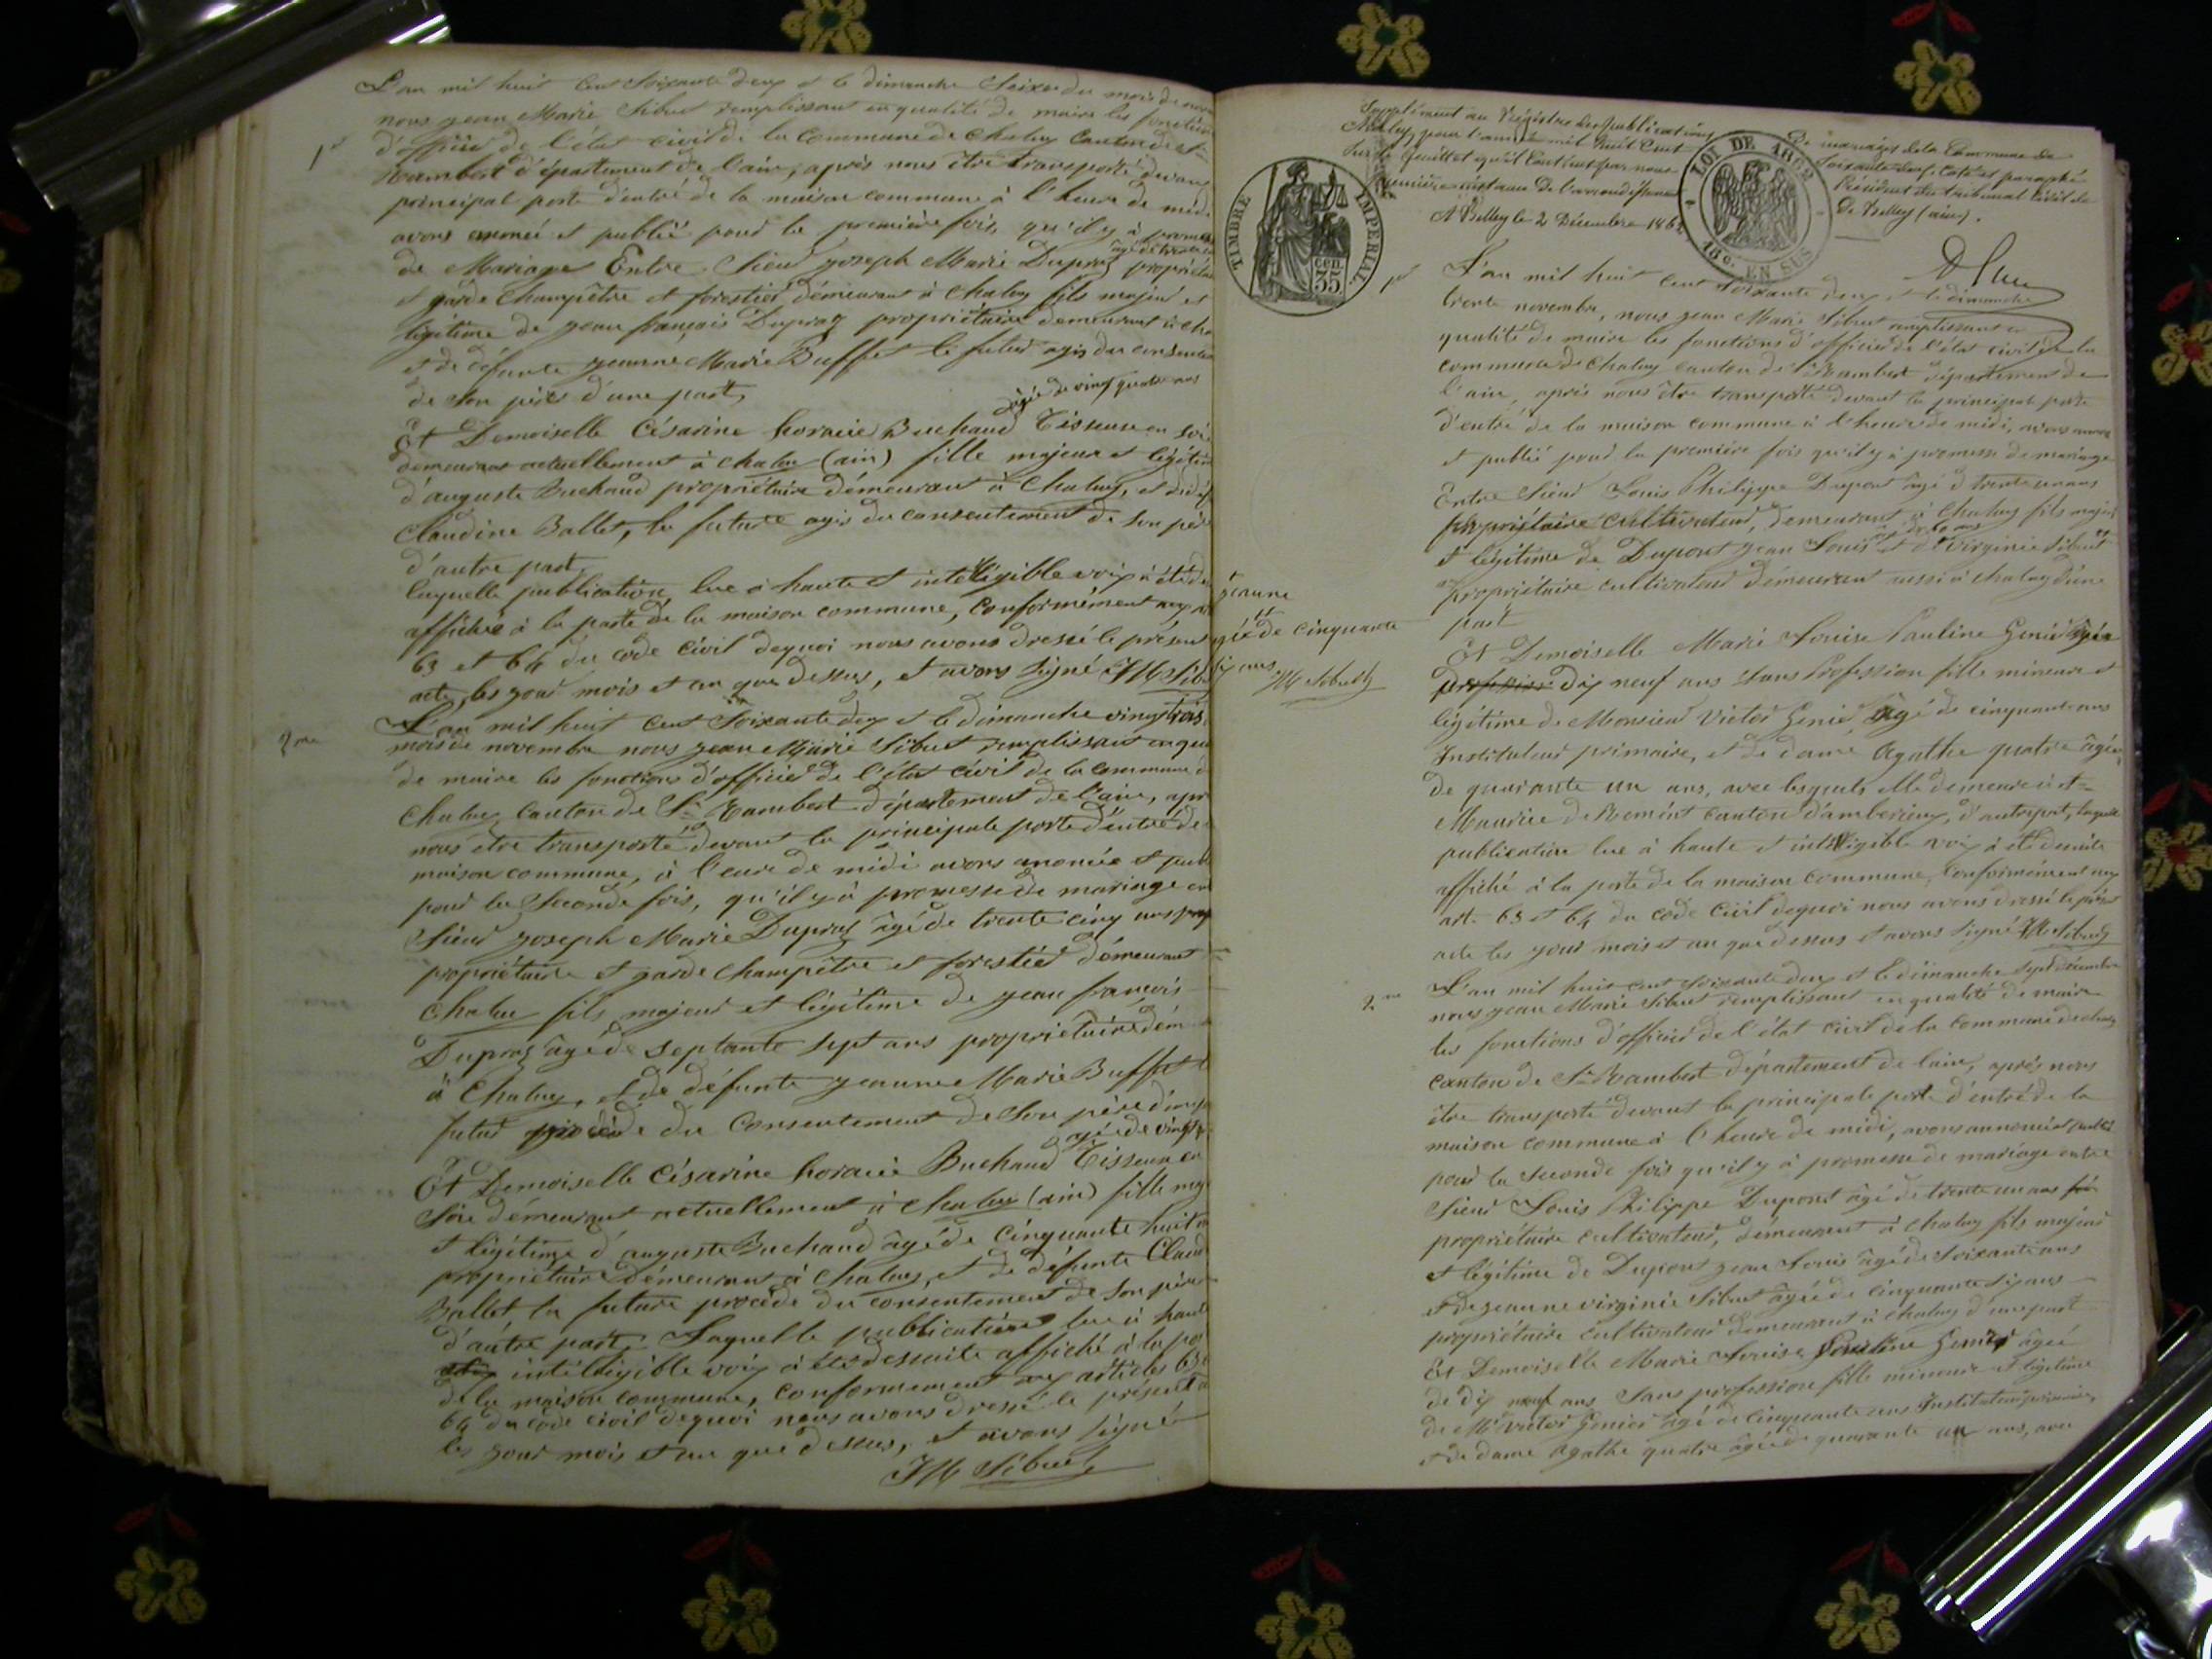 L'an mil huit Cent Soixante deux et le dimanche Seize du mois de
nous jean Marie Sibuet remplissant en qualité de maire les fonctions
1er
d'officier de l'état civil de la commune de Chaley Canton de St
Rambert département de l'ain, après nous être transporté devant
principal porte d'entré de la maison commune à l'heure de midi
avons anoncé et publié pour la première fois, qu'il y à promesse
de Mariage Entre Sieur joseph Marie Dupraz propriétaire
âgé de trente
et garde Champêtre et forestier démeurant à Chaley fils majeur et
légitime de jean françois Dupraz propriétaire demeurant à Cha
et de défunte jeanne Marie Buffet le futur agis du consente
de Son père d'une part,
Et Demoiselle Césarine horacie Buchaud Tisseuse en soie
âgée de vingt quatre ans
demeurant actuellement à Chaley (ain) fille majeur et légitime
d'auguste Buchaud propriétaire démeurant à Chaley, et de
Claudine Ballet, la future agis du consentement de Son père
d'autre part.
laquelle publication lue à haute et intelligible voix à été de
affiché à la porte de la maison commune, Conformément aux
63 et 64 du code Civil dequoi nous avons dressé le présent
acte, les jour mois et an que dessus, et avons Signé JM Sibuet
2me
L'an mil huit Cent Soixante deux et le dimanche vingt trois
mois de novembre nous jean Marie Sibuet remplissant en qua
de maire les fonctions d'officier de l'état Civil de la Commune de
Chaley Canton de St Rambert département de l'ain, apr
nous être transporté devant la principale porte d'entré de
maison commune, à l'eure de midi avons anoncée et publ
pour la Seconde fois, qu'il y à promesse de mariage en
Sieur joseph Marie Dupraz âgé de trente cinq ans
propriétaire et garde Champêtre et forestier démeurant
Chaley fils majeur et légitime de jean françois
Dupraz âgé de septante sept ans propriétaire dém
à Chaley, et de défunte jeanne Marie Buffet
futur procède du Consentement de Son père d'une
Et Demoiselle Césarine horacie Buchaud Tisseuse en
agée de vingt
Soie démeurant actuellement à Chaley (ain) fille maj
et légitime d'auguste Buchaud âgé de Cinquante huit
propriétaire démeurant à Chaley, et de défunte Claud
Ballet la future procède du consentement de Son père
d'autre part. Laquelle publication lue à haute
intelligible voix à été dessuite affiché à la por
de la maison commune, conformement aux articles 63
64 du code civil dequoi nous avons dressé le présent
les jour mois et an que dessus, et avons Signé
JM Sibuet
Supplément au Régistre des publications De mariages de la Commune de
Chaley pour l'année mil huit Cent Soixante deux, Coté et paraphé
Sur le feuillet qu'il Contient par nous Président du tribunal Civil de
première instance De l'arrondissement De Belley (ain).
A Belley le 2 Décembre 1862
TIMBRE IMPERIAL
35 cen.
LOI DE 1862
EN SUS
1er
L'an mil huit cent soixante deux et le dimanche
trente novembre, nous jean Marie Sibuet remplissant en
qualité de maire les fonctions d'officier de l'état civil de la
commune de Chaley canton de St Rambert département de
l'ain, après nous être transporté devant la principale porte
d'entré de la maison commune à l'heure de midi, avons
et publié pour la première fois qu'il y à promesse de mariage
Entre Sieur Louis Philippe Dupont âgé de trente un ans
propriétaire cultivateur, demeurant à Chaley fils majeur
et légitime de Dupont jean Louis et de virginie Sibuet
propriétaire cultivateur démeurant aussi à Chaley d'une
part
jeanne
agée de cinquante
six ans
JM Sibuet
Et Demoiselle Marie Louise Pauline Genié âgée
dix neuf ans Sans Profession fille mineure et
légitime de Monsieur Victor Genié, âgé de cinquante ans
Instituteur primaire, et de dame Agathe quatre âgée
de quarante un ans, avec lesquels elle demeure à St
Maurice de Remént canton d'amberieux, d'autre part, laquelle
publication lue à haute et intelligible voix à été desuite
affiché à la porte de la maison commune, Conformément aux
art. 63 et 64 du code civil dequoi nous avons dressé le présent
acte les jour mois et an que dessus et avons Signé JM Sibuet
2me
L'an mil huit cent soixante deux et le dimanche sept décembre
nous jean Marie Sibuet remplissant en qualité de maire
les fonctions d'officier de l'état civil de la commune de Chaley
canton de St Rambert département de l'ain, après nous
être transporté devant la principale porte d'entré de la
maison commune à l'heure de midi, avons annoncé et publié
pour la Seconde fois qu'il y à promesse de mariage entre
Sieur Louis Philippe Dupont âgé de trente un ans
propriétaire cultivateur, démeurant à Chaley fils majeur
et légitime de Dupont jean Louis âgé de Soixante ans
et de jeanne virginie Sibuet âgée de cinquante six ans
propriétaire cultivateur demeurant à Chaley d'une part
Et Demoiselle Marie Louise Pauline Genié âgée
de dix neuf ans Sans profession fille mineure et légitime
de Mr victor Genier âgé de Cinquante ans Instituteur primaire,
et de dame Agathe quatre âgée de quarante un ans, avec